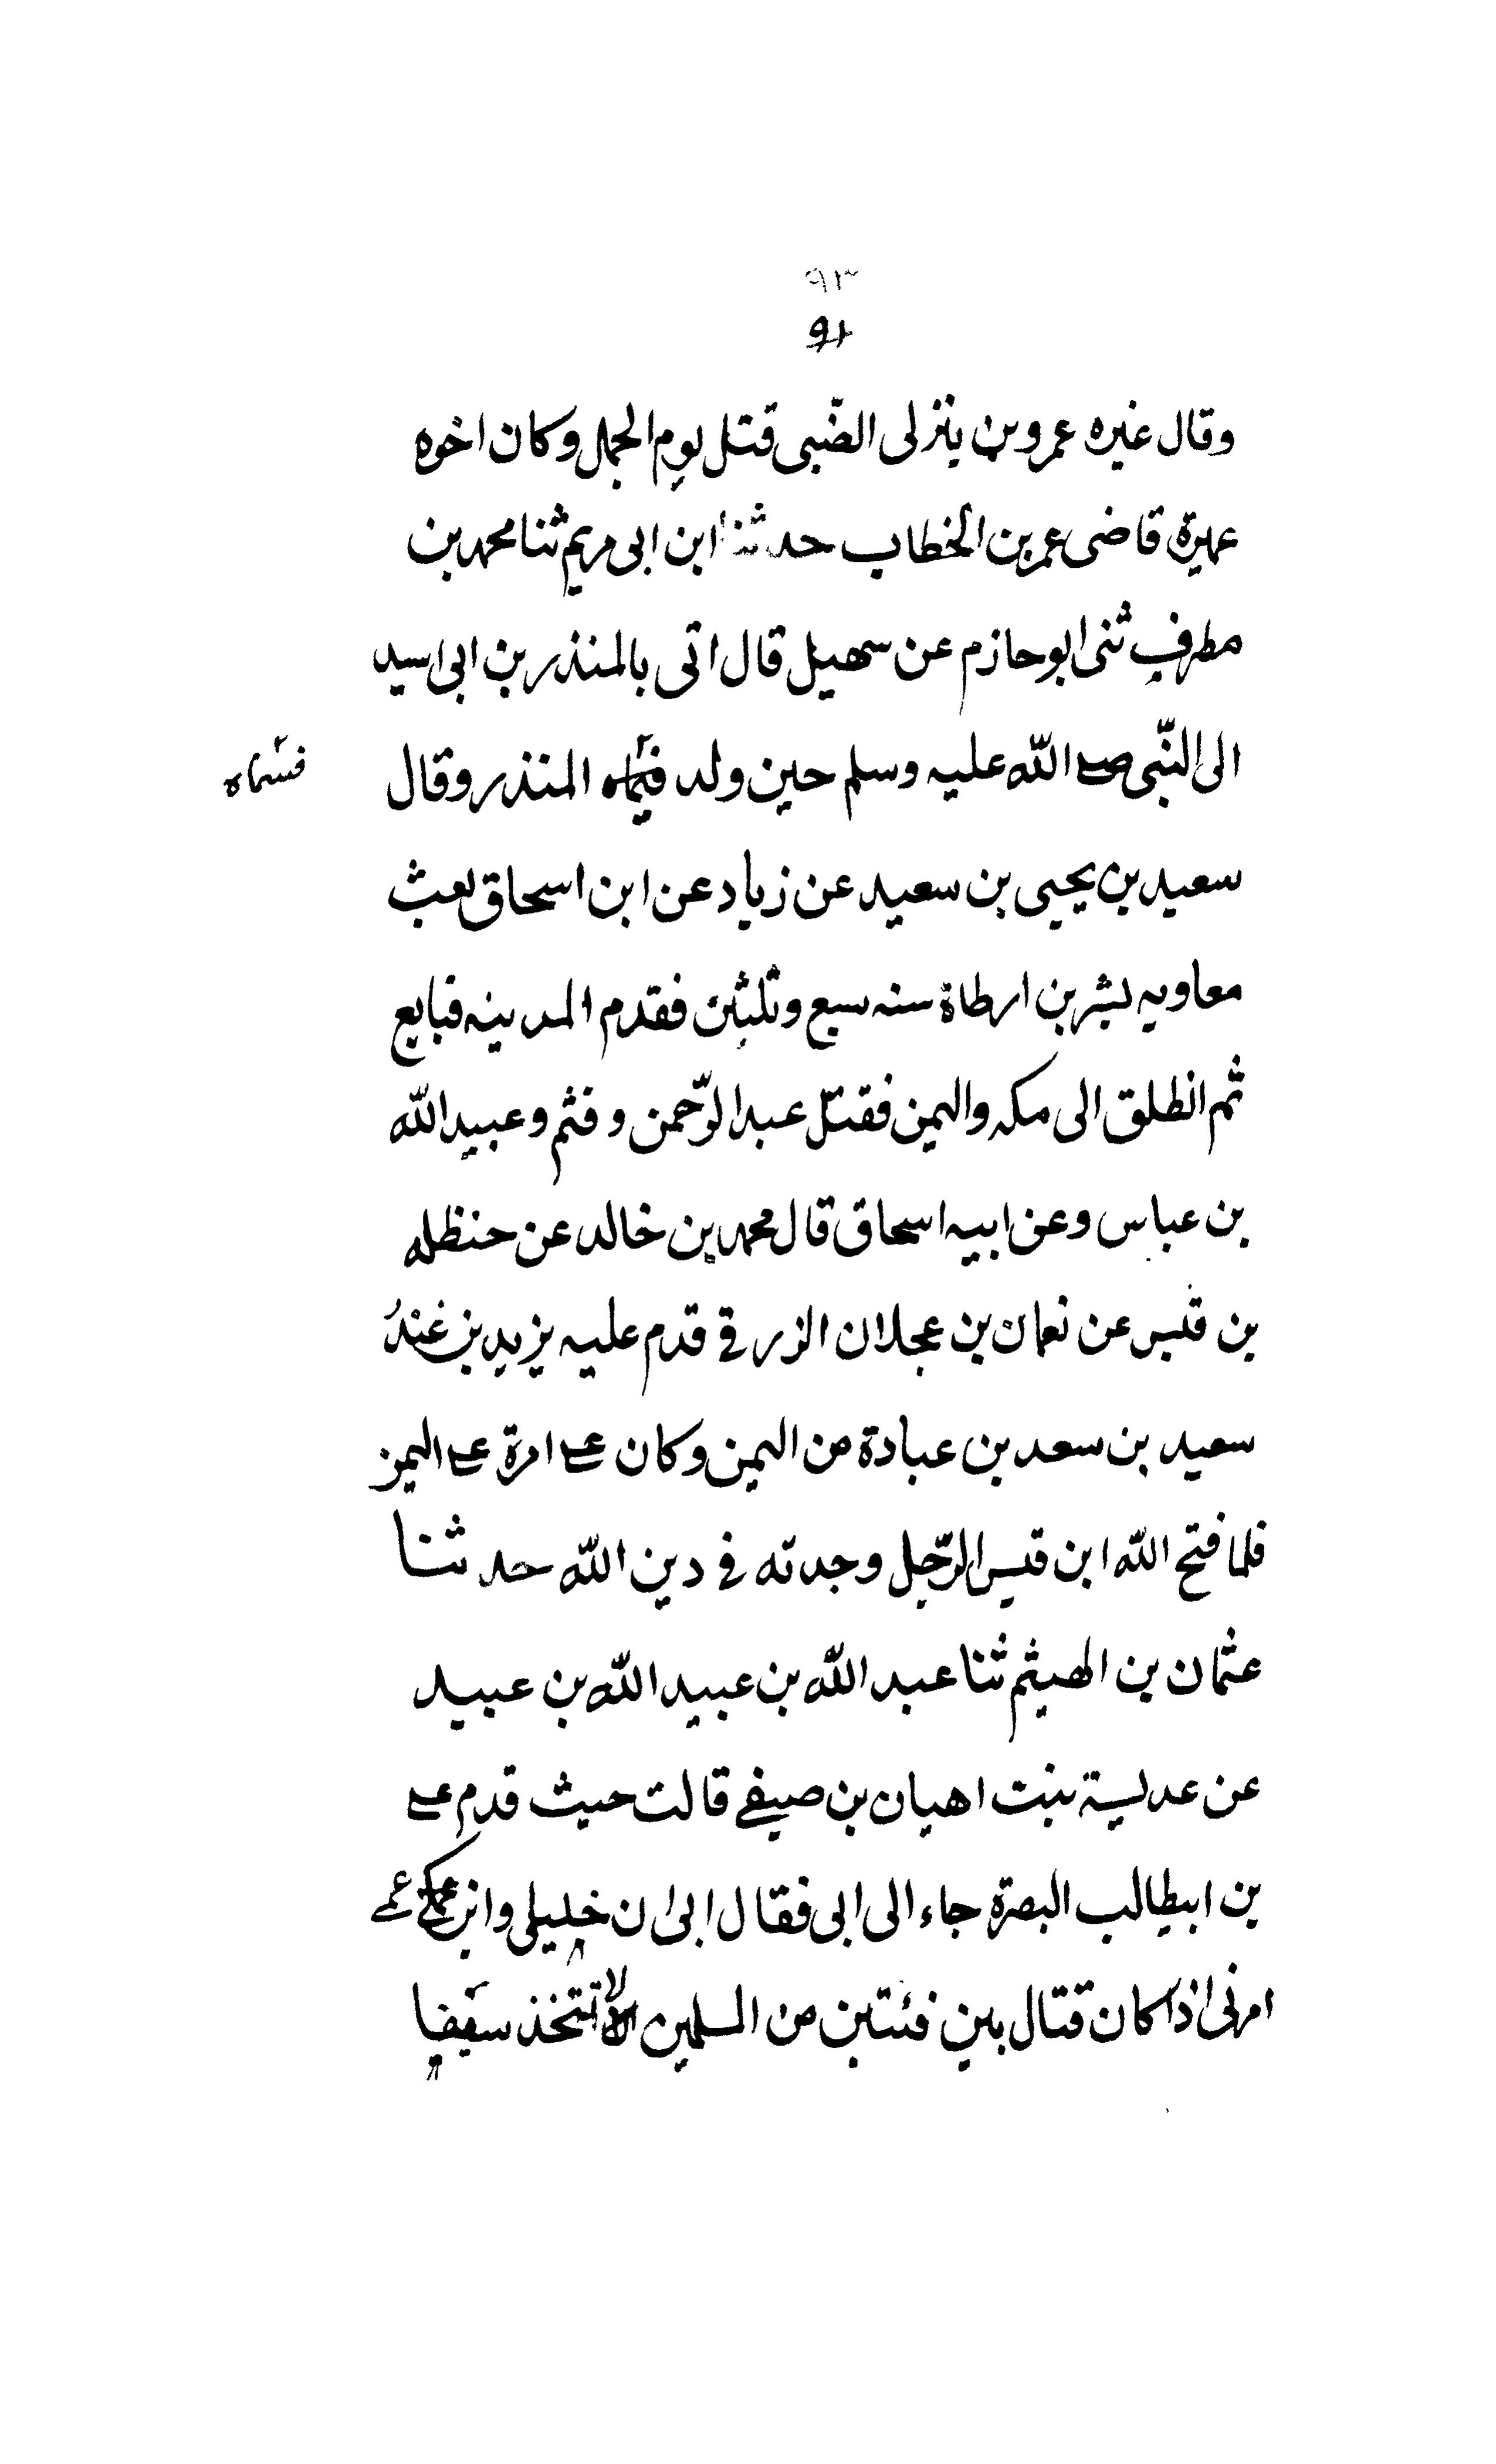 ٩٣
٩٢
وقال غيره عمرو بن يثربى الضّبى قتل يوم الجمل وكان اخوه
عميرة قاضى عمر بن الخطاب حدثنا ابن ابى مريم ثنا محمد بن
مطرف ثنى ابو حازم عن سهيل قال اتى بالمنذر بن ابى اسيد
الى النّبى صلے الله عليه وسلم حين ولد المنذر وقال
فسّماه
سعيد بن يحيى بن سعيد عن زياد عن ابن اسحاق بعث
معاويه بشر بن ارطاة سنه سبع وثلثين فقدم المدينه فبايع
ثم انطلق الى مكه واليمن فقتل عبد الرّحمن وقثم وعبيد الله
بن عباس وعن ابيه اسحاق قال محمد بن خالد عن حنظله
بن قيس عن نعمان بن عجلان الزرقي قدم عليه يزيد بن
سعيد بن سعد بن عبادة من اليمن وكان علے امرة علے اليمن
فلما فتح الله ابن قيس الرّجل وجدته في دين الله حدثنا
عثمان بن الهيثم ثنا عبد الله بن عبيد الله بن عبيد
عن عديسة بنت اهبان بن صيفے قالت حيث قدم علے
بن ابيطالب البصرة جاء الى ابى فقال ابى ان خليلى وابن عمك
امرنى اذا كان قتال بين فئتين من المسلمين تتخذ سيفا